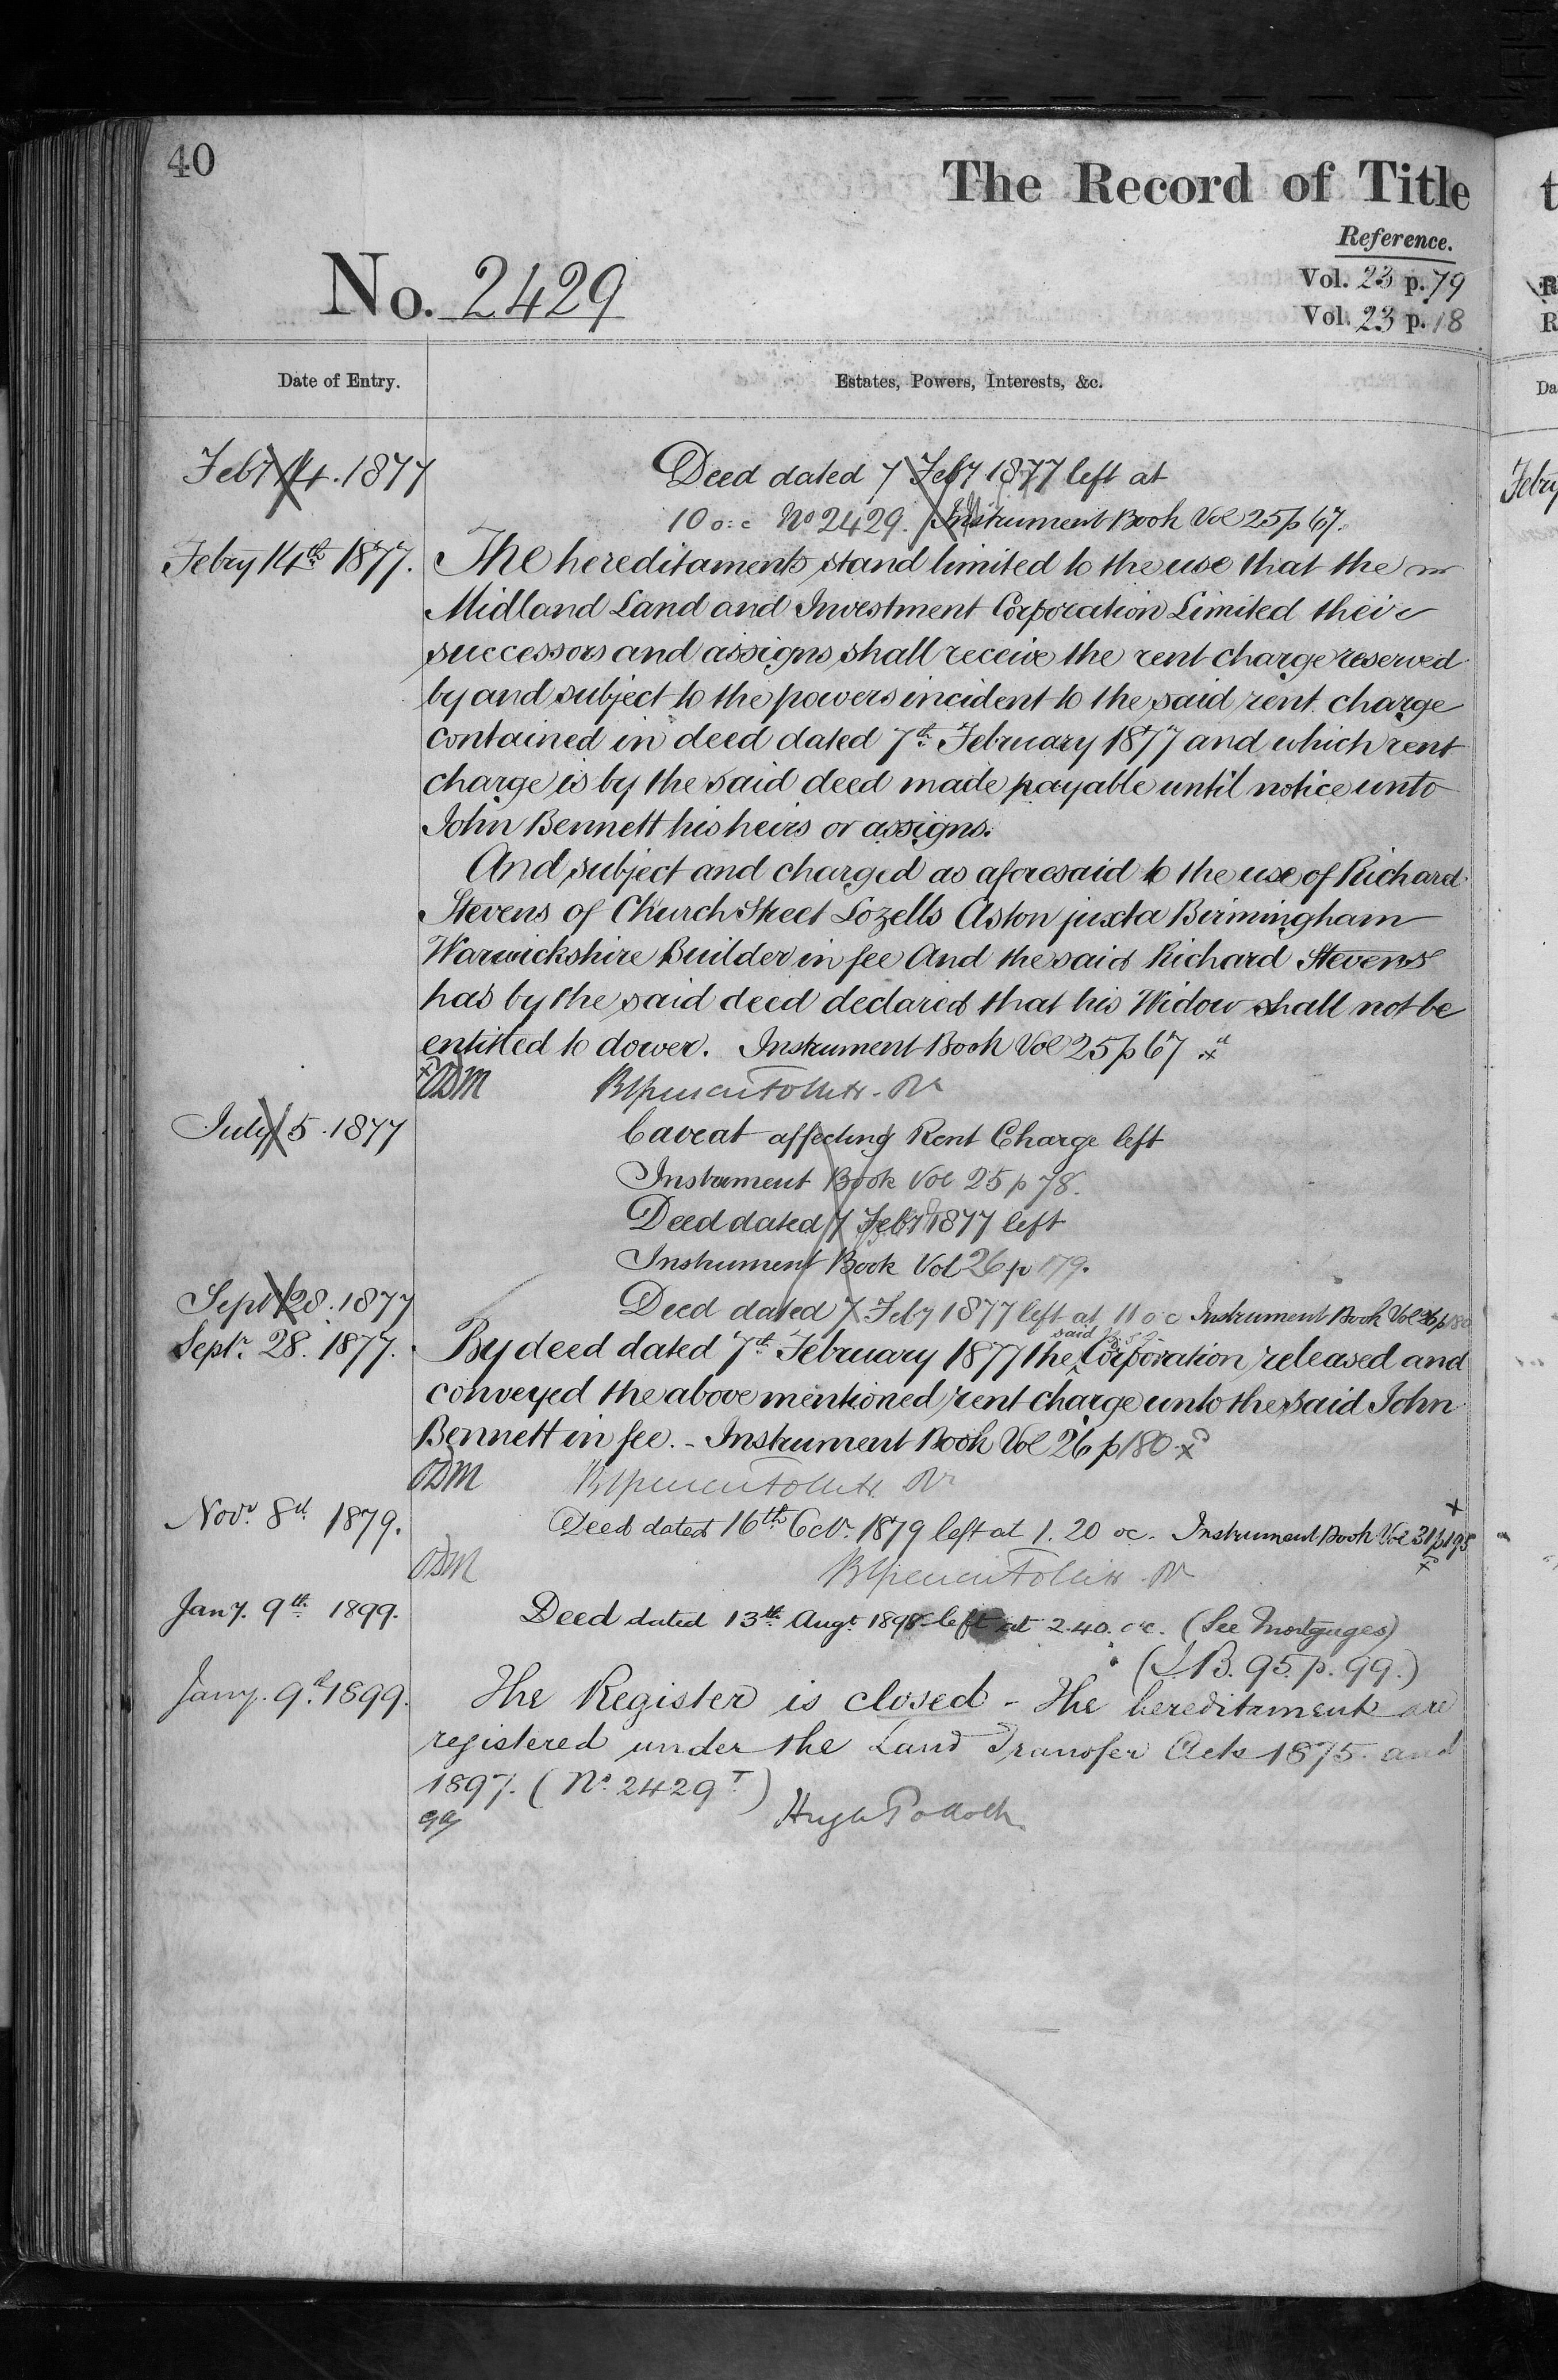 40
The Record of Title
Reference.
No. 2429
Vol. 23 p. 79
Vol. 23 p. 18
Date of Entry.
Estates, Powers, Interests, &c.
Feby 14. 1877 Deed dated 7 Feby 1877 left at
10 o:c No 2429. Instrument Book Vol 25 p 67.
Febry 14th 1877. The hereditaments stand limited to the use that the
Midland Land and Investment Corporation Limited their
successors and assigns shall receive the rent charge reserved
by and subject to the powers incident to the said rent charge
contained in deed dated 7th February 1877 and which rent
charge is by the said deed made payable until notice unto
John Bennett his heirs or assigns.
And subject and charged as aforesaid to the use of Richard
Stevens of Church Street Lozells Aston juxta Birmingham
Warwickshire Builder in fee And the said Richard Stevens
has by the said deed declared that his Widow shall not be
entitled to dower. Instrument Book Vol 25 p 67 x
July 5. 1877 Caveat affecting Rent Charge left
Instrument Book Vol 25 p 78.
Deed dated 7 Feby 1877 left
Instrument Book Vol 26 p 179.
Sept 28. 1877 Deed dated 7 Feby 1877 left at 11 o c Instrument Book Vol 26 p 180
Septr. 28. 1877. By deed dated 7th February 1877 the said Corporation released and
conveyed the above mentioned rent charge unto the said John
Bennett in fee. - Instrument Book Vol 26 p 180 x
Novr 8th 1879. Deed dated 16th Octr. 1879 left at 1.20 oc. Instrument Book Vol 31 p 195
Jany. 9th 1899. Deed dated 13th Augt 1898 left at 2.40. o'c. (See Mortgages)
(I.B. 95. p. 99.)
Jany. 9th 1899. The Register is closed - The hereditaments are
registered under the Land Transfer Acts 1875 and
1897. (No. 2429 T)
Hugh Pollock